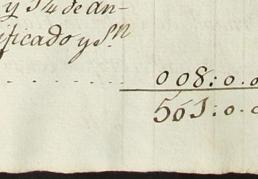 y 14 de an-
ificado y S.n
008:0.0
501:0.0